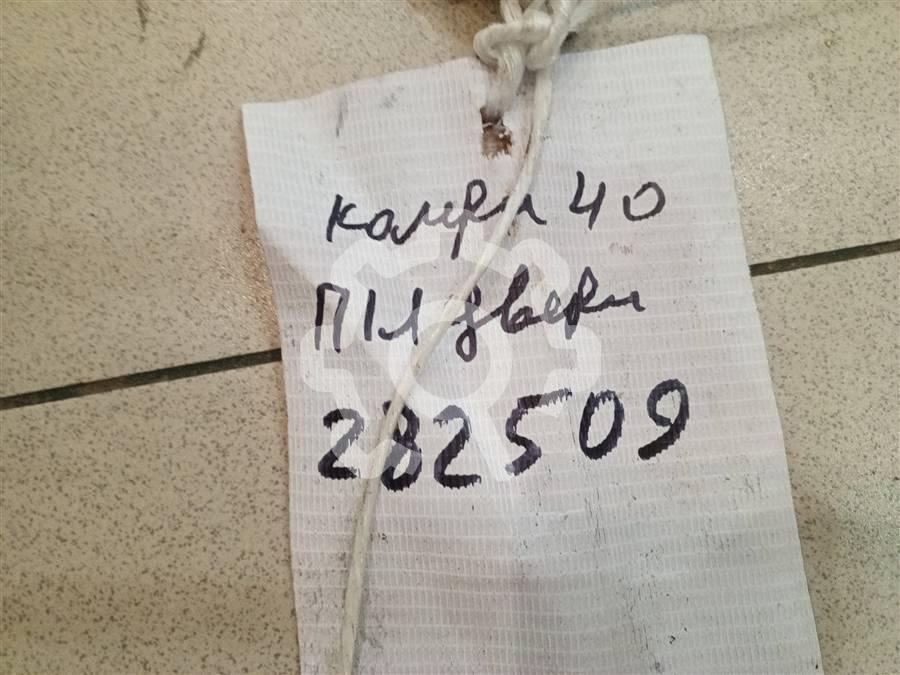 камри 40
ПЛ двери
282509